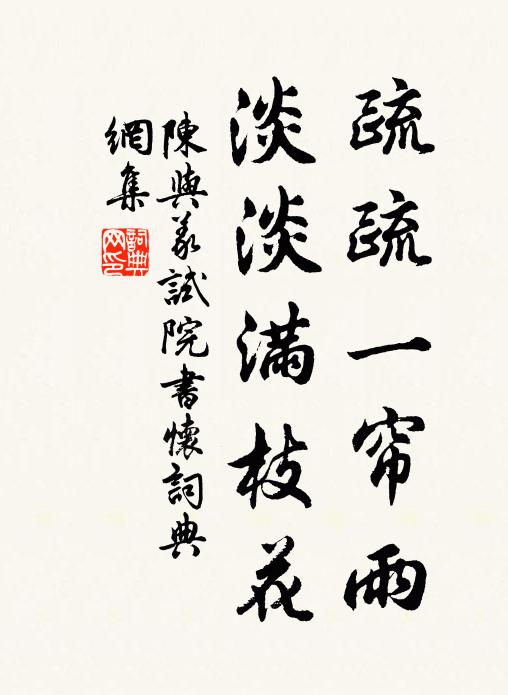 疏疏一帘雨
淡淡滿枝花
陳與義試院書懷詞典
網集
詞典
网印